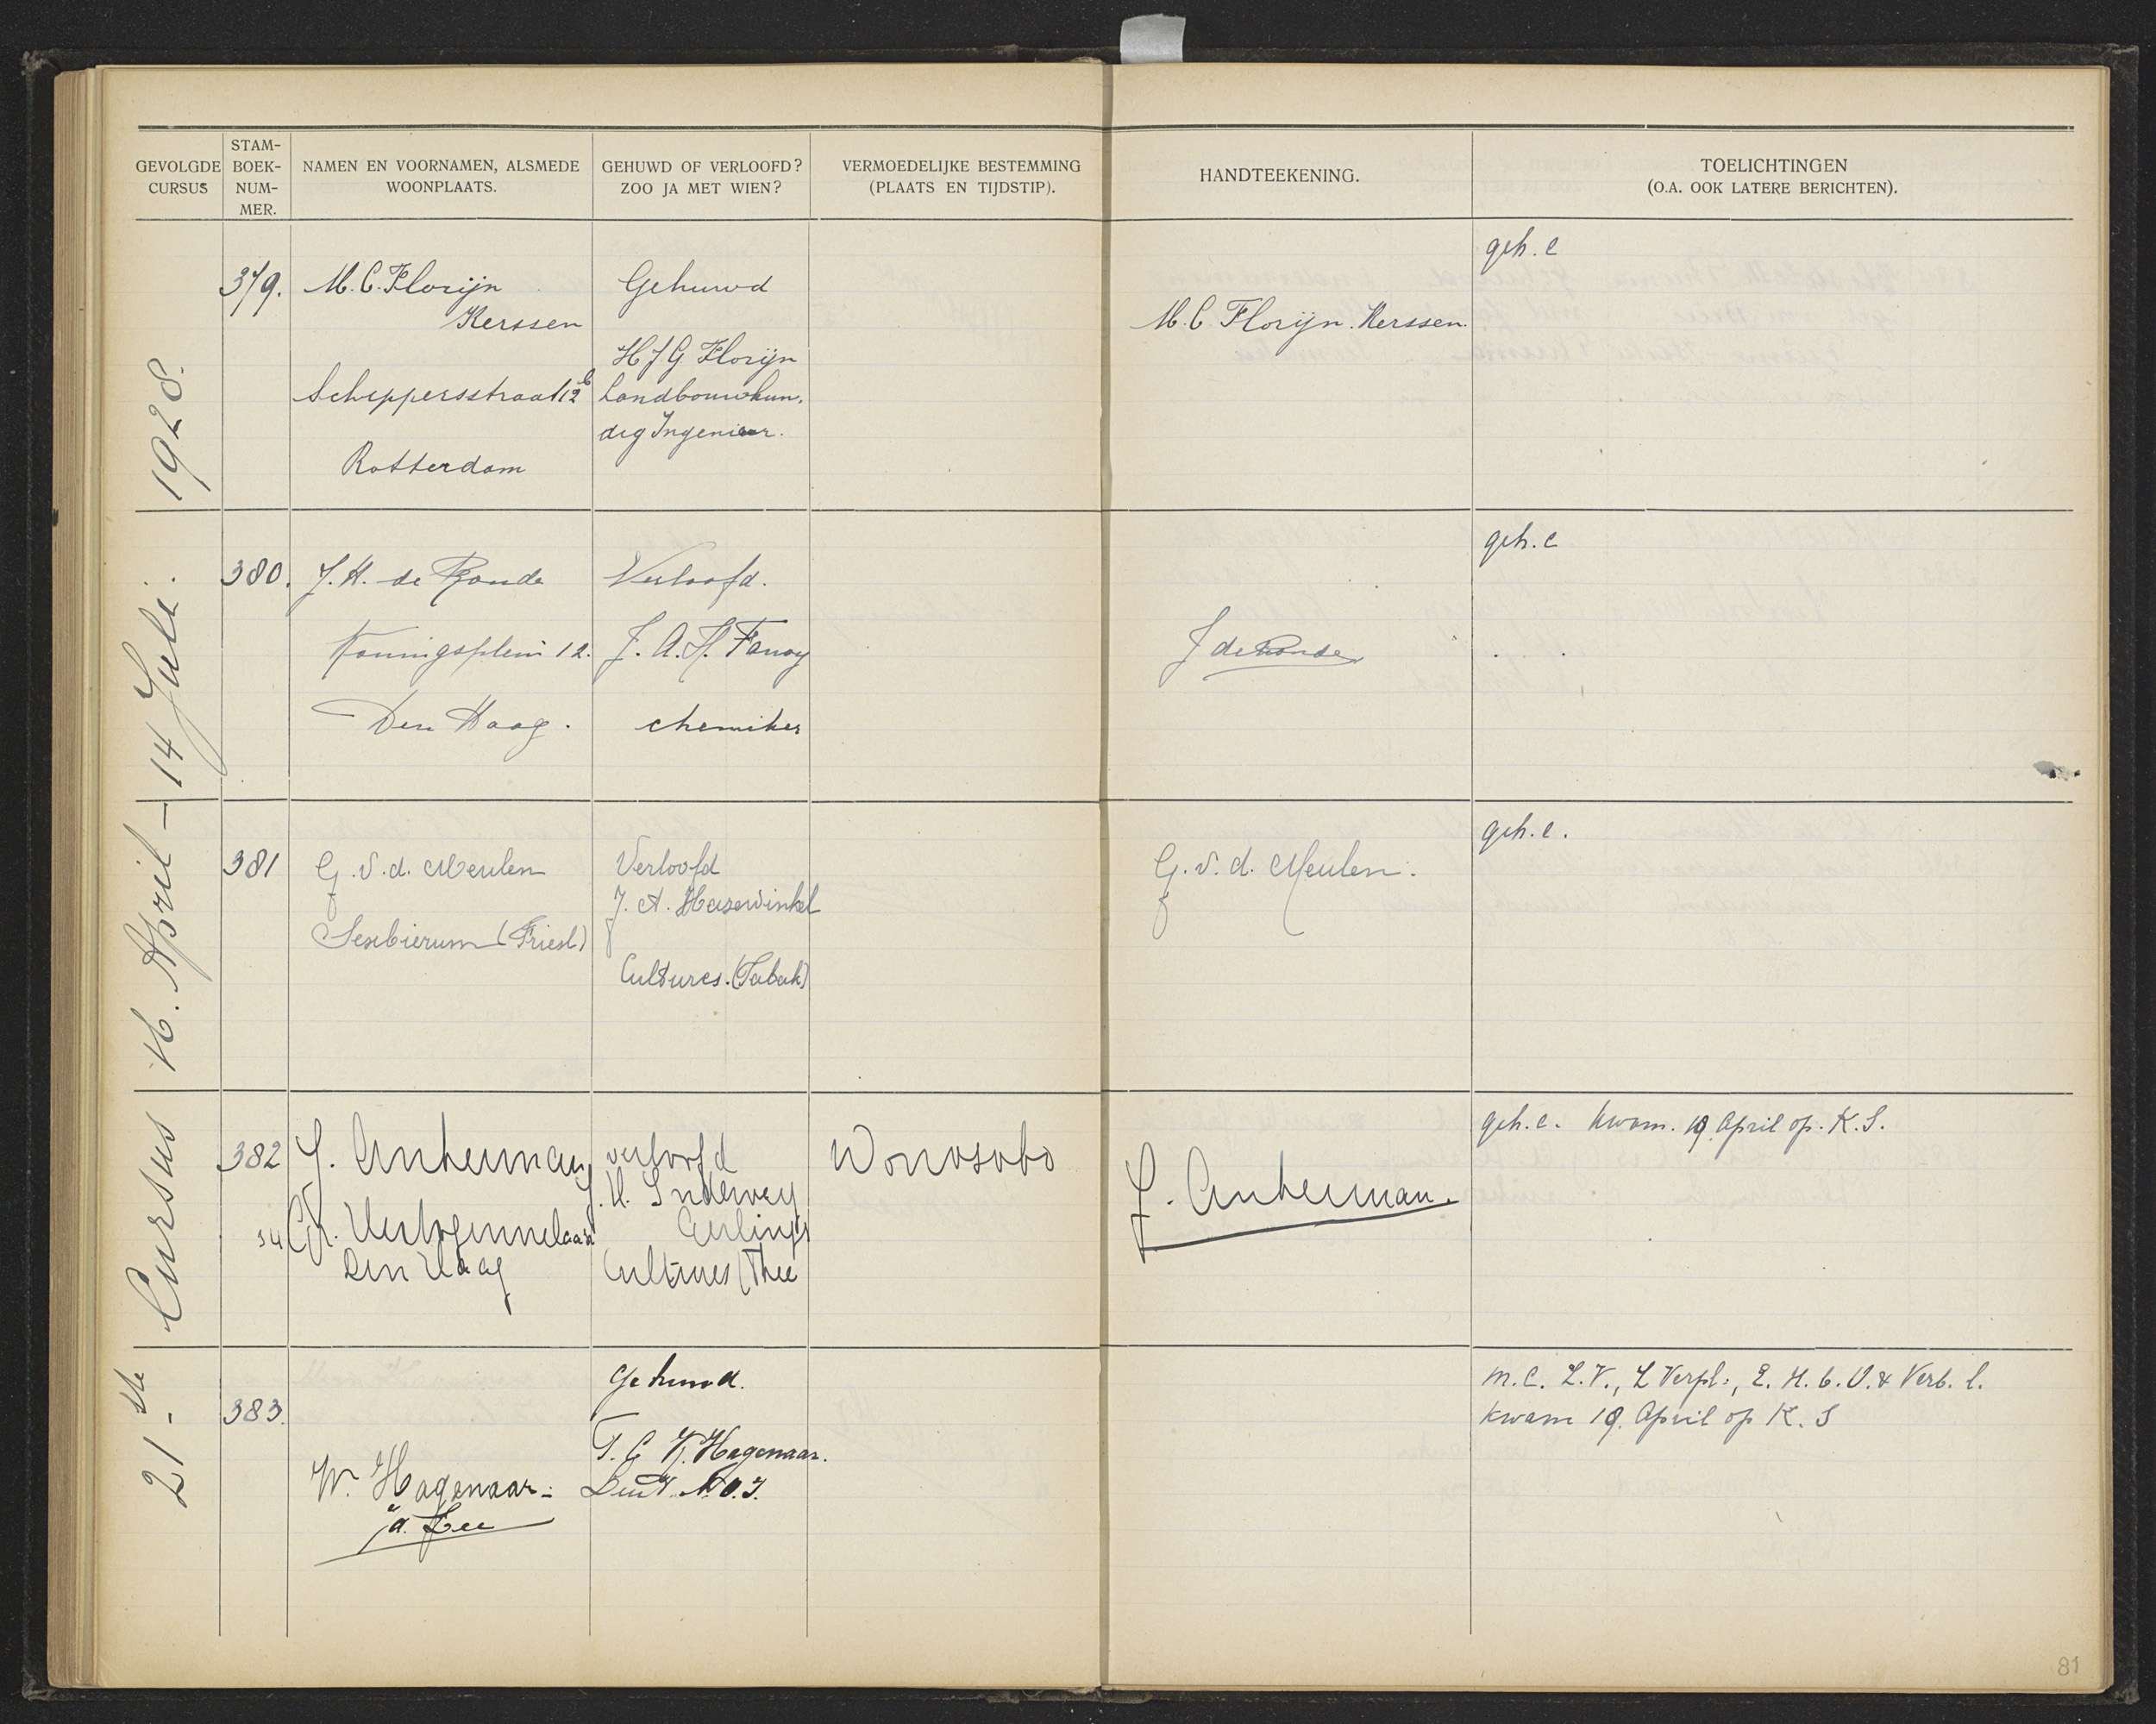 GEVOLGDE
CURSUS
STAM-
BOEK-
NUM-
MER.
NAMEN EN VOORNAMEN, ALSMEDE
WOONPLAATS.
GEHUWD OF VERLOOFD?
ZOO JA MET WIEN?
VERMOEDELIJKE BESTEMMING
(PLAATS EN TIJDSTIP).
HANDTEEKENING.
TOELICHTINGEN
(O.A. OOK LATERE BERICHTEN).
21-ste Cursus 16. April - 14 Juli. 1928.
379.
M. C. Florijn
Kerssen
Scheppersstraat 12b
Rotterdam
Gehuwd
H J G Florijn
Landbouwkun.
dig Ingenieur.
M. C. Florijn. Kerssen.
geh. c
380.
J. H. de Ronde
Koningsplein 12.
Den Haag.
Verloofd.
J. A. H. Fanoy
chemiker
J de Ronde
geh. c
381
G. v. d. Meulen
Sexbierum (Friesl)
Verloofd
J. A. Hazewinkel
Cultures. (Tabak)
G. v. d. Meulen.
geh. c.
382
J. Ankerman
34
Den Haag
verloofd
Cultures (Thee
Wonosobo
J. Ankerman.
geh. c. kwam. 19. April op. K. S.
383.
W. Hagenaar-
v. d. Lee
Gehuwd.
T. C. K. Hagenaar.
Luit. N. O. I.
m. C. Z. V., Z Verpl:, E. H. b. O. & Verb. l.
kwam 19. April op K. S
81